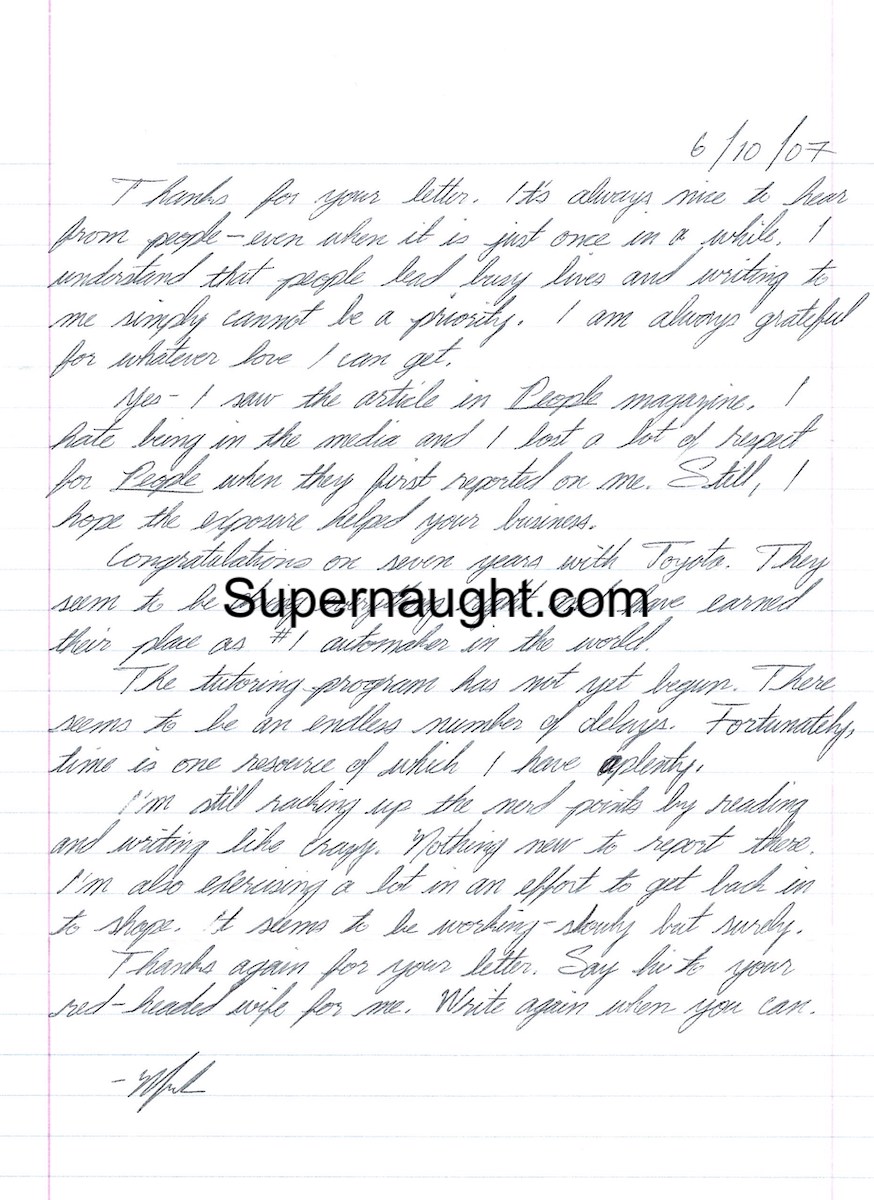 6/10/07
Thanks for your letter. It's always nice to hear
from people - even when it is just once in a while. I
understand that people lead busy lives and writing to
me simply cannot be a priority. I am always grateful
for whatever love I can get.
Yes - I saw the article in People magazine. I
hate being in the media and I lost a lot of respect
for People when they first reported on me. Still, I
hope the exposure helped your business.
Congratalations on seven years with Toyota. They
seem to be have earned
Supernaught.com
their place as #1 automaker in the world.
The tutoring program has not yet begun. There
seems to be an endless number of delays. Fortunately,
time is one resource of which I have aplenty.
I'm still racking up the nerd points by reading
and writing like crazy. Nothing new to report there.
I'm also exercising a lot in an effort to get back in
to shape. It seems to be working - slowly but surely.
Thanks again for your letter. Say hi to your
red-headed wife for me. Write again when you can.